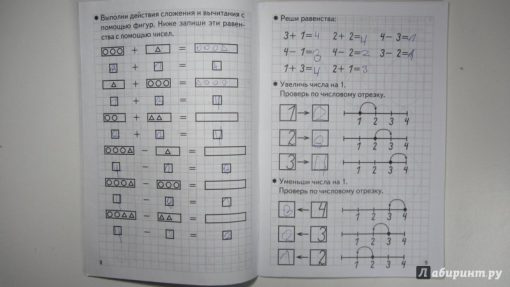 Выполни действия сложения и вычитания с
помощью фигур. Ниже запиши эти равен-
ства с помощью чисел.
+ =
+ =
+ =
+ =
+ =
+ =
− =
− =
− =
− =
− =
− =
8
Реши равенства:
3 + 1 = 4 2 + 2 = 4 4 − 3 = 1
4 − 1 = 3 4 − 2 = 2 3 − 2 = 1
1 + 3 = 4 2 + 1 = 3
Увеличь числа на 1.
Проверь по числовому отрезку.
1 → 2 1 2 3 4
2 → 3 1 2 3 4
3 → 4 1 2 3 4
Уменьши числа на 1.
Проверь по числовому отрезку.
← 4 1 2 3 4
← 3 1 2 3 4
← 2 1 2 3 4
9
Лабиринт.ру